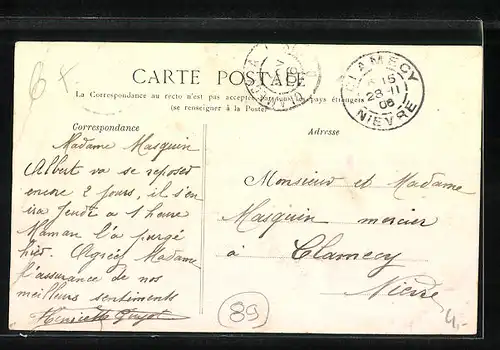 CARTE POSTALE
La Correspondance au recto n'est pas acceptée par tous les pays étrangers
(se renseigner à la Poste)
Correspondance
Adresse
CLAMECY
15
28 - 11
06
NIEVRE
6 x
Madame Masquin
Albert va se reposer
encore 2 jours, il s'en
ira Jeudi a 1 heure
Maman l'a purgé
hier. Agréez Madame
l'assurance de nos
meilleurs sentiments
Henriette Guyot
Monsieur et Madame
Masquin mercier
à Clamecy
Nièvre
89
4,-